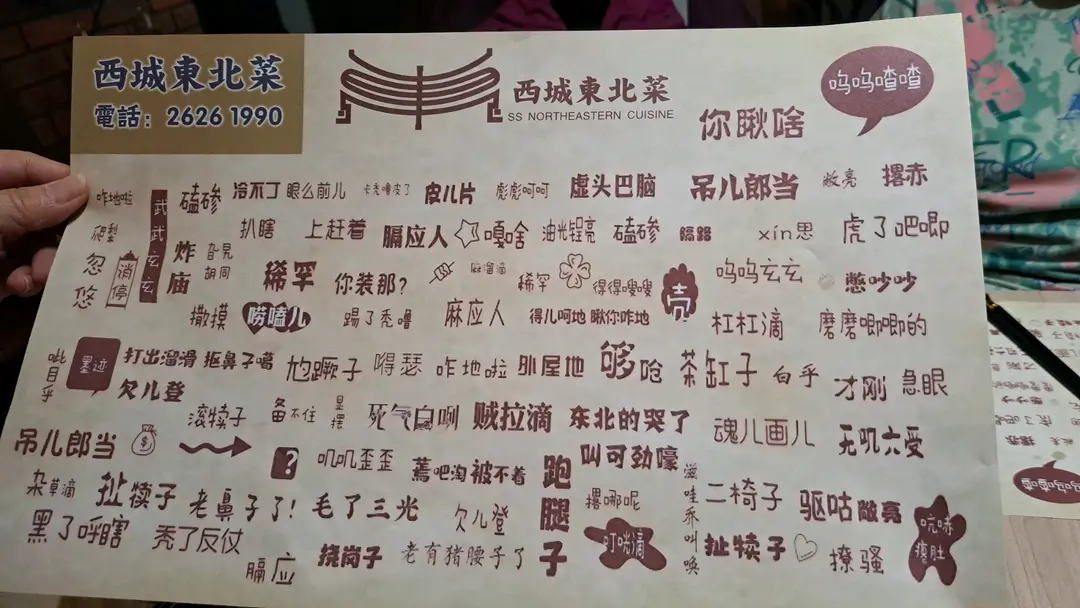 西城東北菜
電話：2626 1990
西城東北菜
SS NORTHEASTERN CUISINE
你瞅啥
呜呜喳喳
咋地啦
武武玄玄
磕碜
冷不丁
眼么前儿
卡秃噜皮了
皮儿片
彪彪呵呵
虚头巴脑
吊儿郎当
敞亮
撂赤
爬犁
扒瞎
上赶着
膈应人
嘎啥
油光锃亮
磕碜
隔路
xín思
虎了吧唧
忽悠
消停
炸庙
旮旯胡同
稀罕
你装那?
麻溜滴
稀罕
得得嗖嗖
壳
呜呜玄玄
憋吵吵
撒摸
唠嗑儿
踢了秃噜
麻应人
得儿呵地
瞅你咋地
杠杠滴
磨磨唧唧的
呲目乎
墨迹
打出溜滑
抠鼻子噶
欠儿登
尥蹶子
嘚瑟
咋地啦
趴屋地
够呛
茶缸子
白乎
才刚
急眼
滚犊子
备不住
显摆
死气白咧
贼拉滴
东北的哭了
魂儿画儿
无叽六受
吊儿郎当
?
叽叽歪歪
蔫吧淘
被不着
跑腿子
叫可劲嚎
滋哇乔叫唤
杂草滴
扯犊子
老鼻子了!
毛了三光
欠儿登
撂哪呢
二椅子
驱咕
敞亮
黑了呼瞎
秃了反仗
膈应
挠岗子
老有猪腰子了
叮咣滴
扯犊子
撩骚
吭哧瘪肚